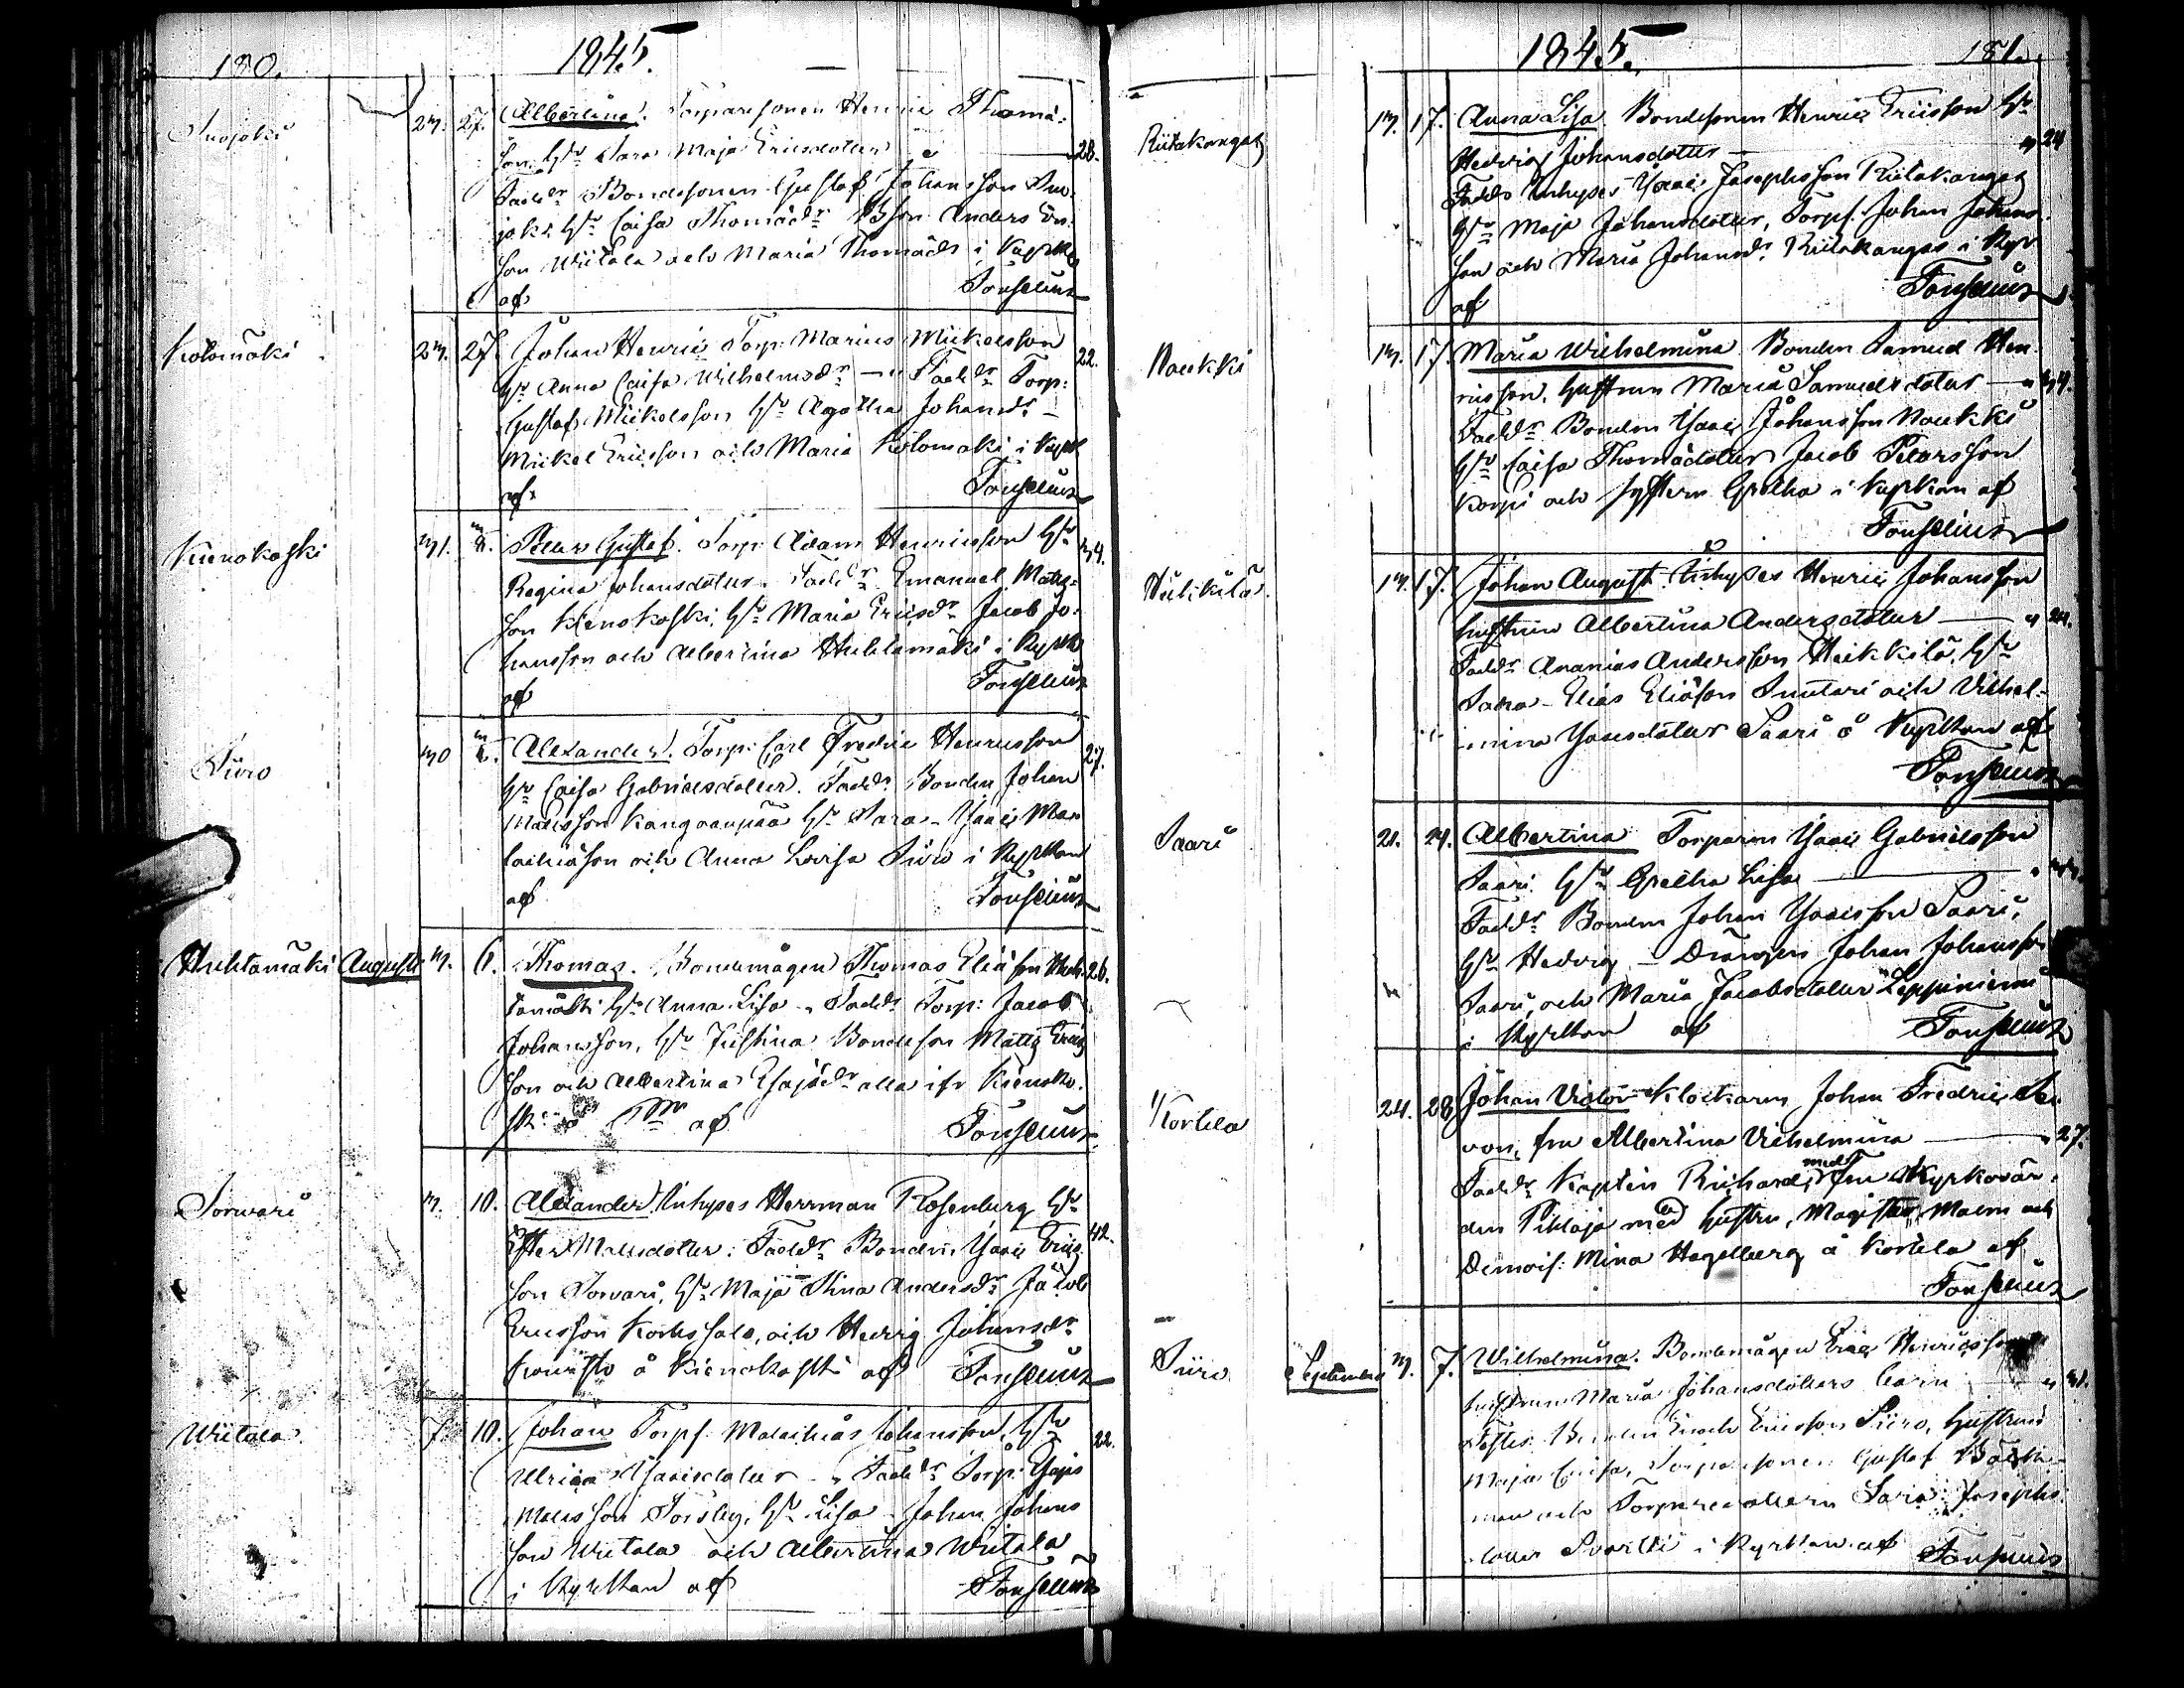 180. 1845.
Susjoki 27. 27. Albertina. Torparesonen Henric Thomæ-
son Hu Sara Maja Ericsdotter 28.
Faddr Bondesonen Gustaf Johansson Sus-
joki Hu Caisa Thomædr Bson Anders
son Wiitala och Maria Thomædr i Kyrkan
af Fonselius
Kolomäki 27. 27. Johan Henric Torp: Marius Mickelsson 22.
Hu Anna Caisa Wilhelmsdr — Faddr Torp:
Gustaf Mickelsson Hu Agatha Johansdr –
Mickel Ericsson och Maria Kolomäki i Kyrk
af Fonselius
Kienokoski 31. 8. Petter Gustaf. Torp: Adam Henricsson Hu 34.
Regina Johansdotter. Faddr Emanuel Matts-
son Kienokoski, Hu Maria Ericsdr Jacob Jo-
hansson och Albertina Huhtamäki i Kyrk
af Fonselius
Siiro 30 Alexander. Torp: Carl Fredric Henricsson 27.
Hu Caisa Gabrielsdotter. Faddr Bonden Johan
Mattsson Kangaanpää Hu Sara – Isaac Ma-
lachiæson och Anna Lovisa Siiro i Kyrkan
af Fonselius
Huhtamäki Augusti 3. 6. Thomas. Bondemågen Thomas Eliæson Huh- 26.
tamäki Hu Anna Lisa – Faddr Torp: Jacob
Johansson, Hu Justina Bondeson Matts Erics
son och Albertina Esajædr alla ifr Kienoko-
ski af Fonselius
Sorvari 3. 10. Alexander Inhyses Herrman Rosenberg Hu
Ester Mattsdotter. Faddr Bonden Isaac Erics- 42.
son Sorvari, Hu Maja Stina Andersdr Jacob
Ericsson Korkssalo, och Hedvig Johansdr
å Kienokoski af Fonselius
Wiitala 7. 10. Johan Torpf. Malachias Johansson, Hu 22.
Ulrica Isacsdotter – Faddr Torp: Esajas
Mattsson Forsby, Hu Lisa – Johan Johans
son Wiitala och Albertina Wiitala
i Kyrkan af Fonselius
1845. 181.
Riitakangas 13. 17. Anna Lisa Bondesonen Henric Ericsson Hu
Hedvig Johansdotter — 24
Faddr Inhyses Isaac Josephsson Riitakangas
Hu Maja Johansdotter, Torpf. Johan Johans-
son och Maria Johansdr Riitakangas i Kyr
af Fonselius
Naukki 13. 17. Maria Wilhelmina Bonden Samuel Hen-
ricsson, hustrun Maria Samuelsdotter — 34.
Faddr Bonden Isaac Johansson Naukki
Hu Caisa Thomædotter Jacob Petersson
Korpi och systern Gretha i Kyrkan af
Fonselius
Heikkilä 13. 17. Johan August. Inhyses Henric Johansson
hustrun Albertina Andersdotter — 24.
Faddr Ananias Andersson Heikkilä, Hu
Sara – Elias Eliæson Suutari och Vilhel-
mina Isacsdotter Saari å Kyrkan af
Fonselius
Saari 21. 24. Albertina Torparen Isaac Gabrielsson
Saari Hu Gretha Lisa — 33.
Faddr Bonden Johan Isacsson Saari,
Hu Hedvig – Drängen Johan Johansson
Saari, och Maria Jacobsdotter Leppiniemi
i Kyrkan af Fonselius
Kortela 24. 28 Johan Victor Klockaren Johan Fredric
von, fru Albertina Vilhelmina — 27.
Faddr Kaptein Richard, med fru Kyrkovär-
den Pihlaja med hustru, Magister Malm och
Demois: Mina Hagelberg å Kortela af
Fonselius
Siiro September 3. 7. Wilhelmina. Bondemågen Eric Henricsson
hustrun Maria Johansdotters barn — 31.
Testes Bonden Enoch Ericsson Siiro, hustrun
Maja Caisa, Torparesonen Gustaf Back-
man och Torparedottern Sara Josephs-
dotter Svartti i Kyrkan af Fonselius